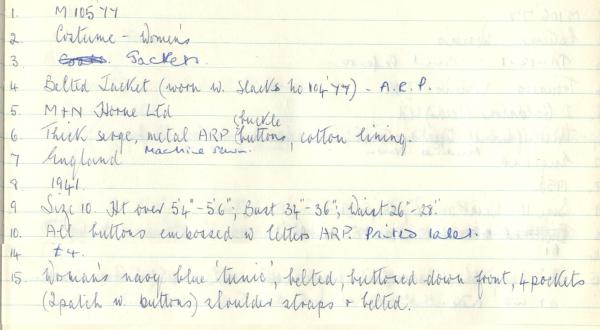 1. M 105'77
2. Costume - Women's
3 Jackets.
4 Belted Jacket (worn w. Slacks no 104'77) - A.R.P.
5 M+N Horne Ltd
6. Thick serge, metal ARP (buckle buttons, cotton lining.
7 England Machine sewn.
8 1941.
9 Size 10. Ht over 5'4"-5'6", Bust 34"-36"; Waist 26"-28"
10. All buttons embossed w letters ARP. Printed label.
14 £4.
15. Woman's navy blue 'tunic', belted, buttoned down front, 4 pockets
(2 patch w. buttons) shoulder straps + belted.